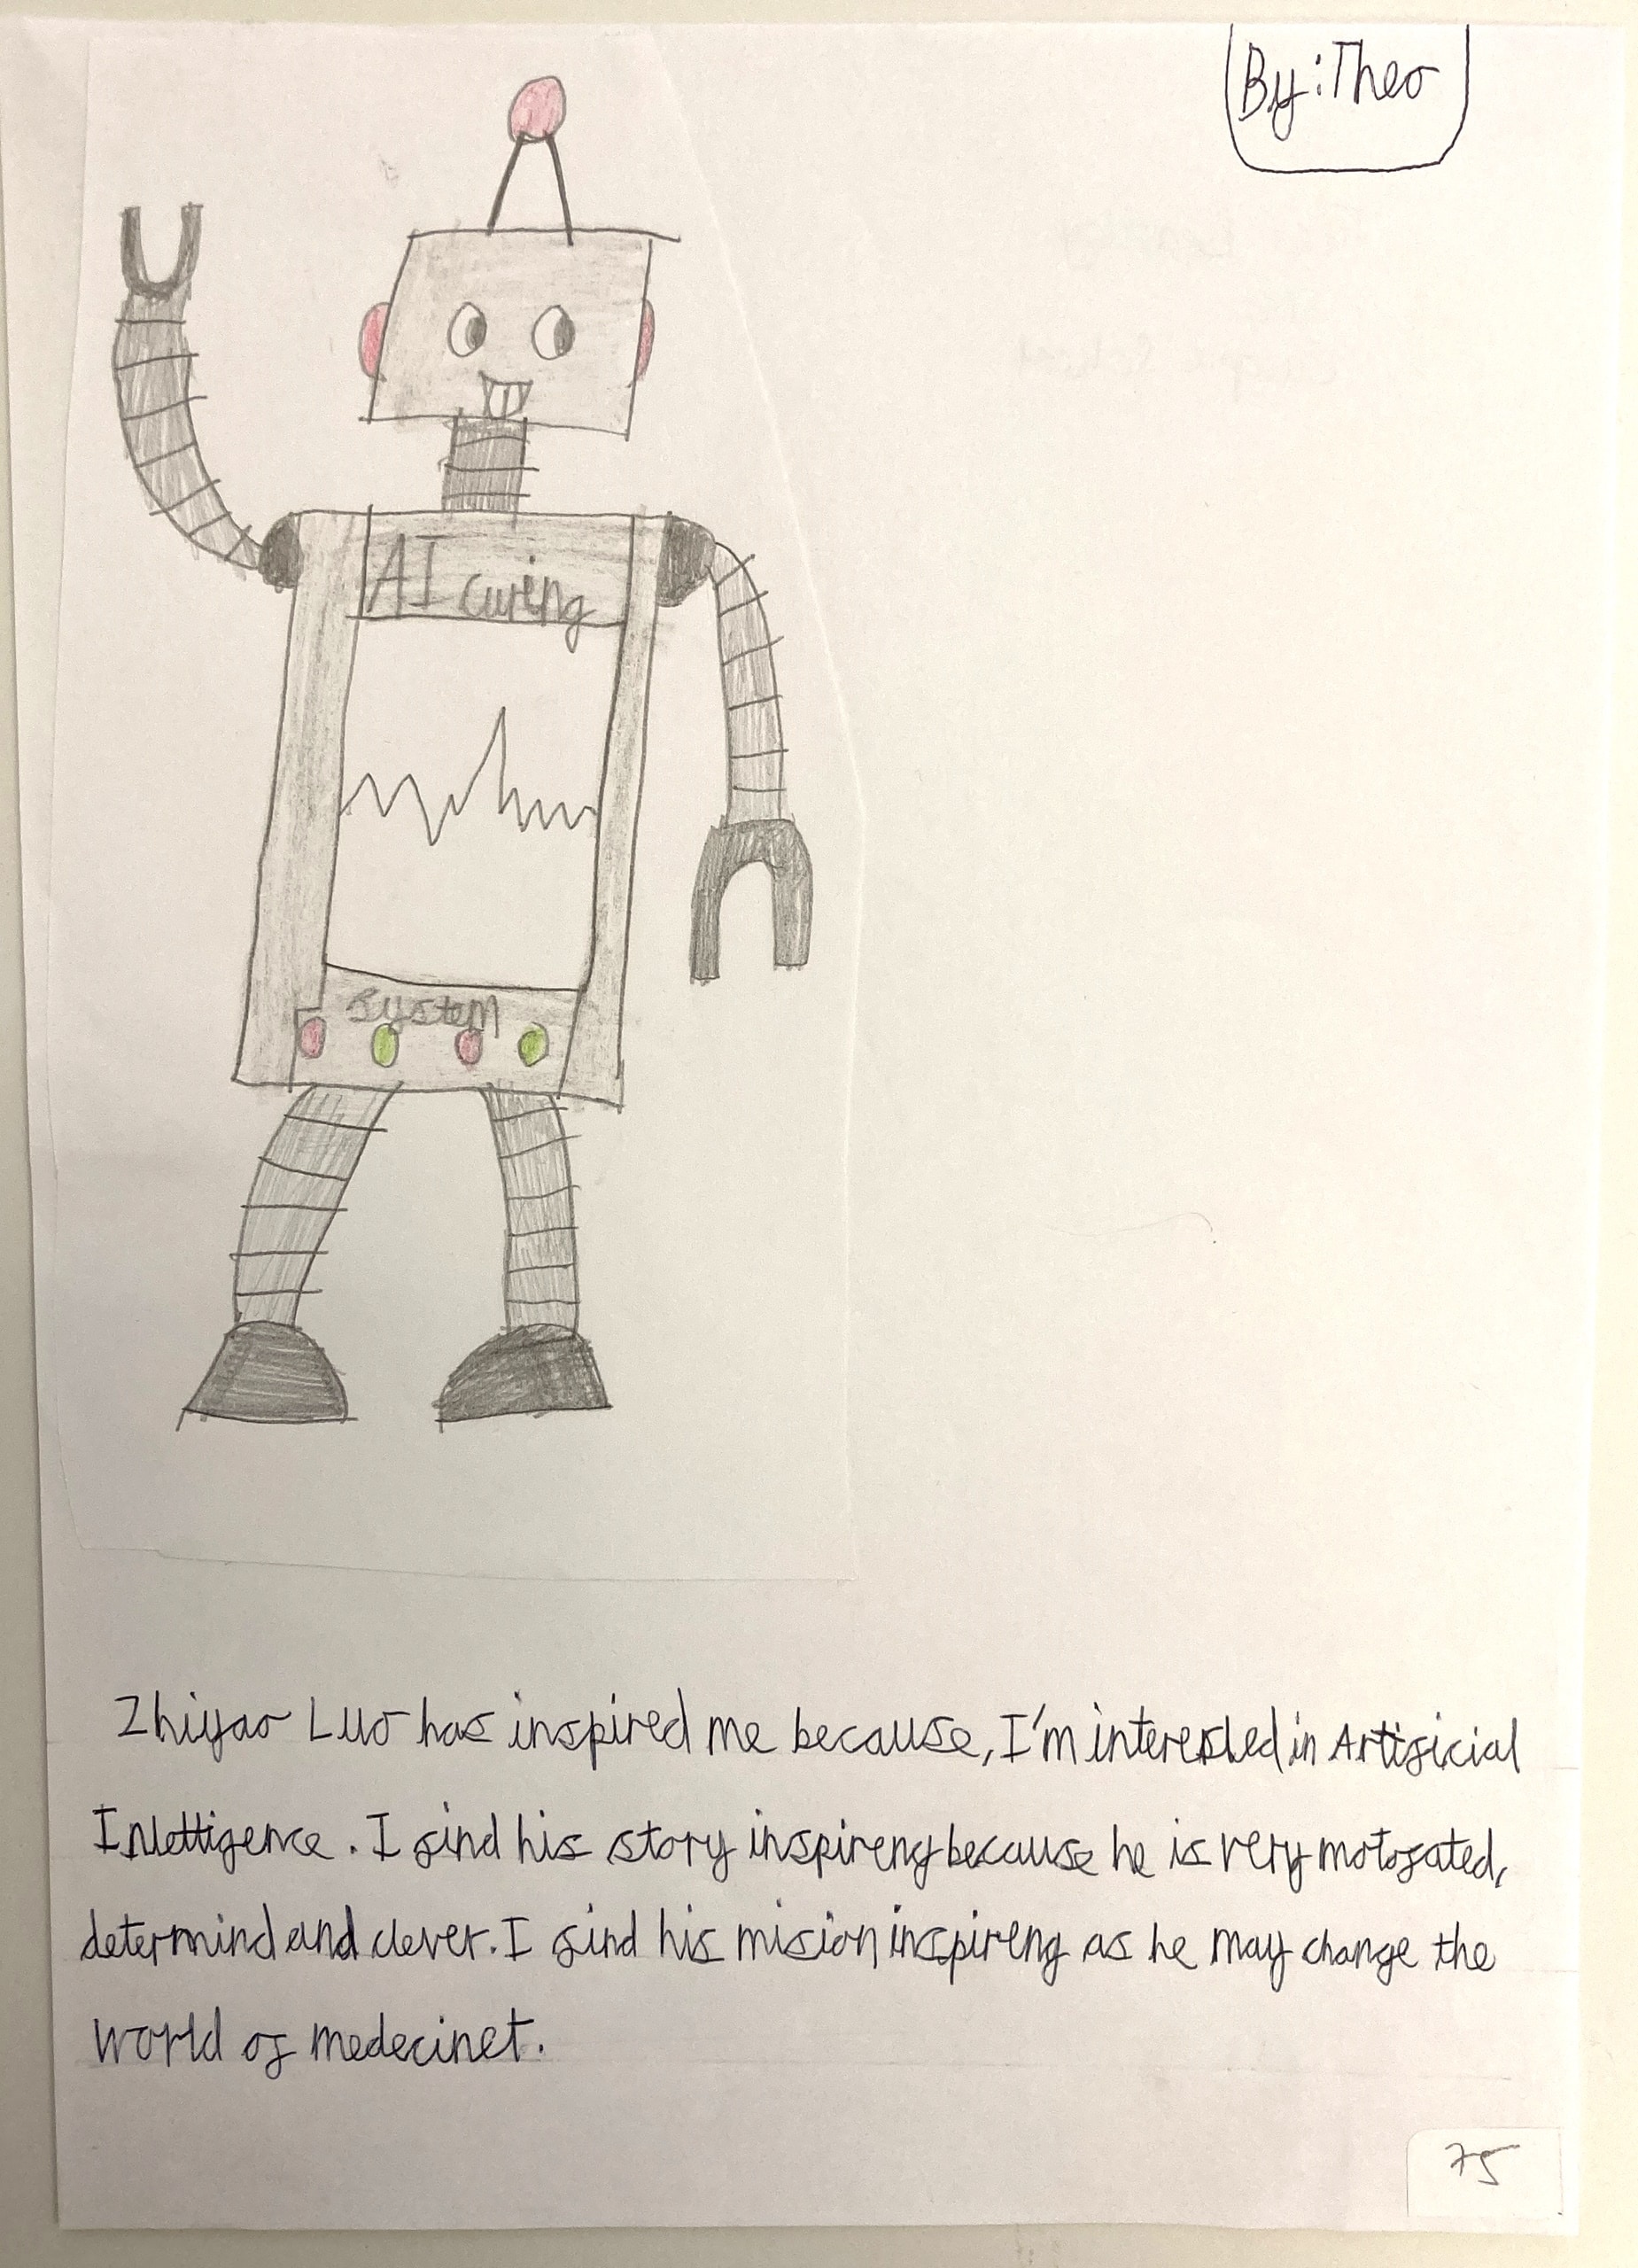 By: Theo
AI curing
system
Zhiyao Luo has inspired me because, I'm interested in Artificial
Intettigence. I find his story inspireng because he is very motovated,
determind and clever. I find his mision inspireng as he may change the
world of medecinet.
75